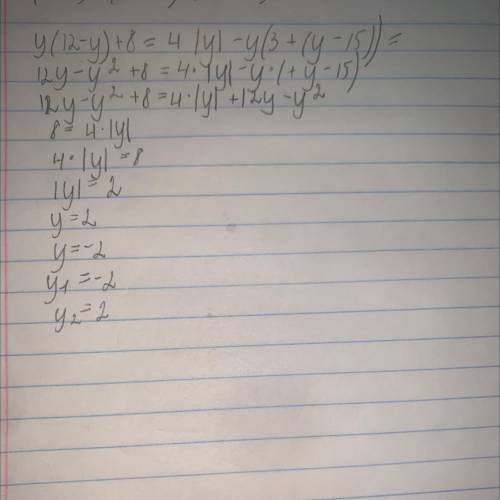 y(12-y)+8 = 4 |y| -y(3+(y-15)) =
12y-y² +8 = 4·|y|-y·(+y-15)
12y-y² +8=4·|y| +12y-y²
8= 4·|y|
4·|y| =8
|y|= 2
y=2
y=-2
y₁ =-2
y₂=2